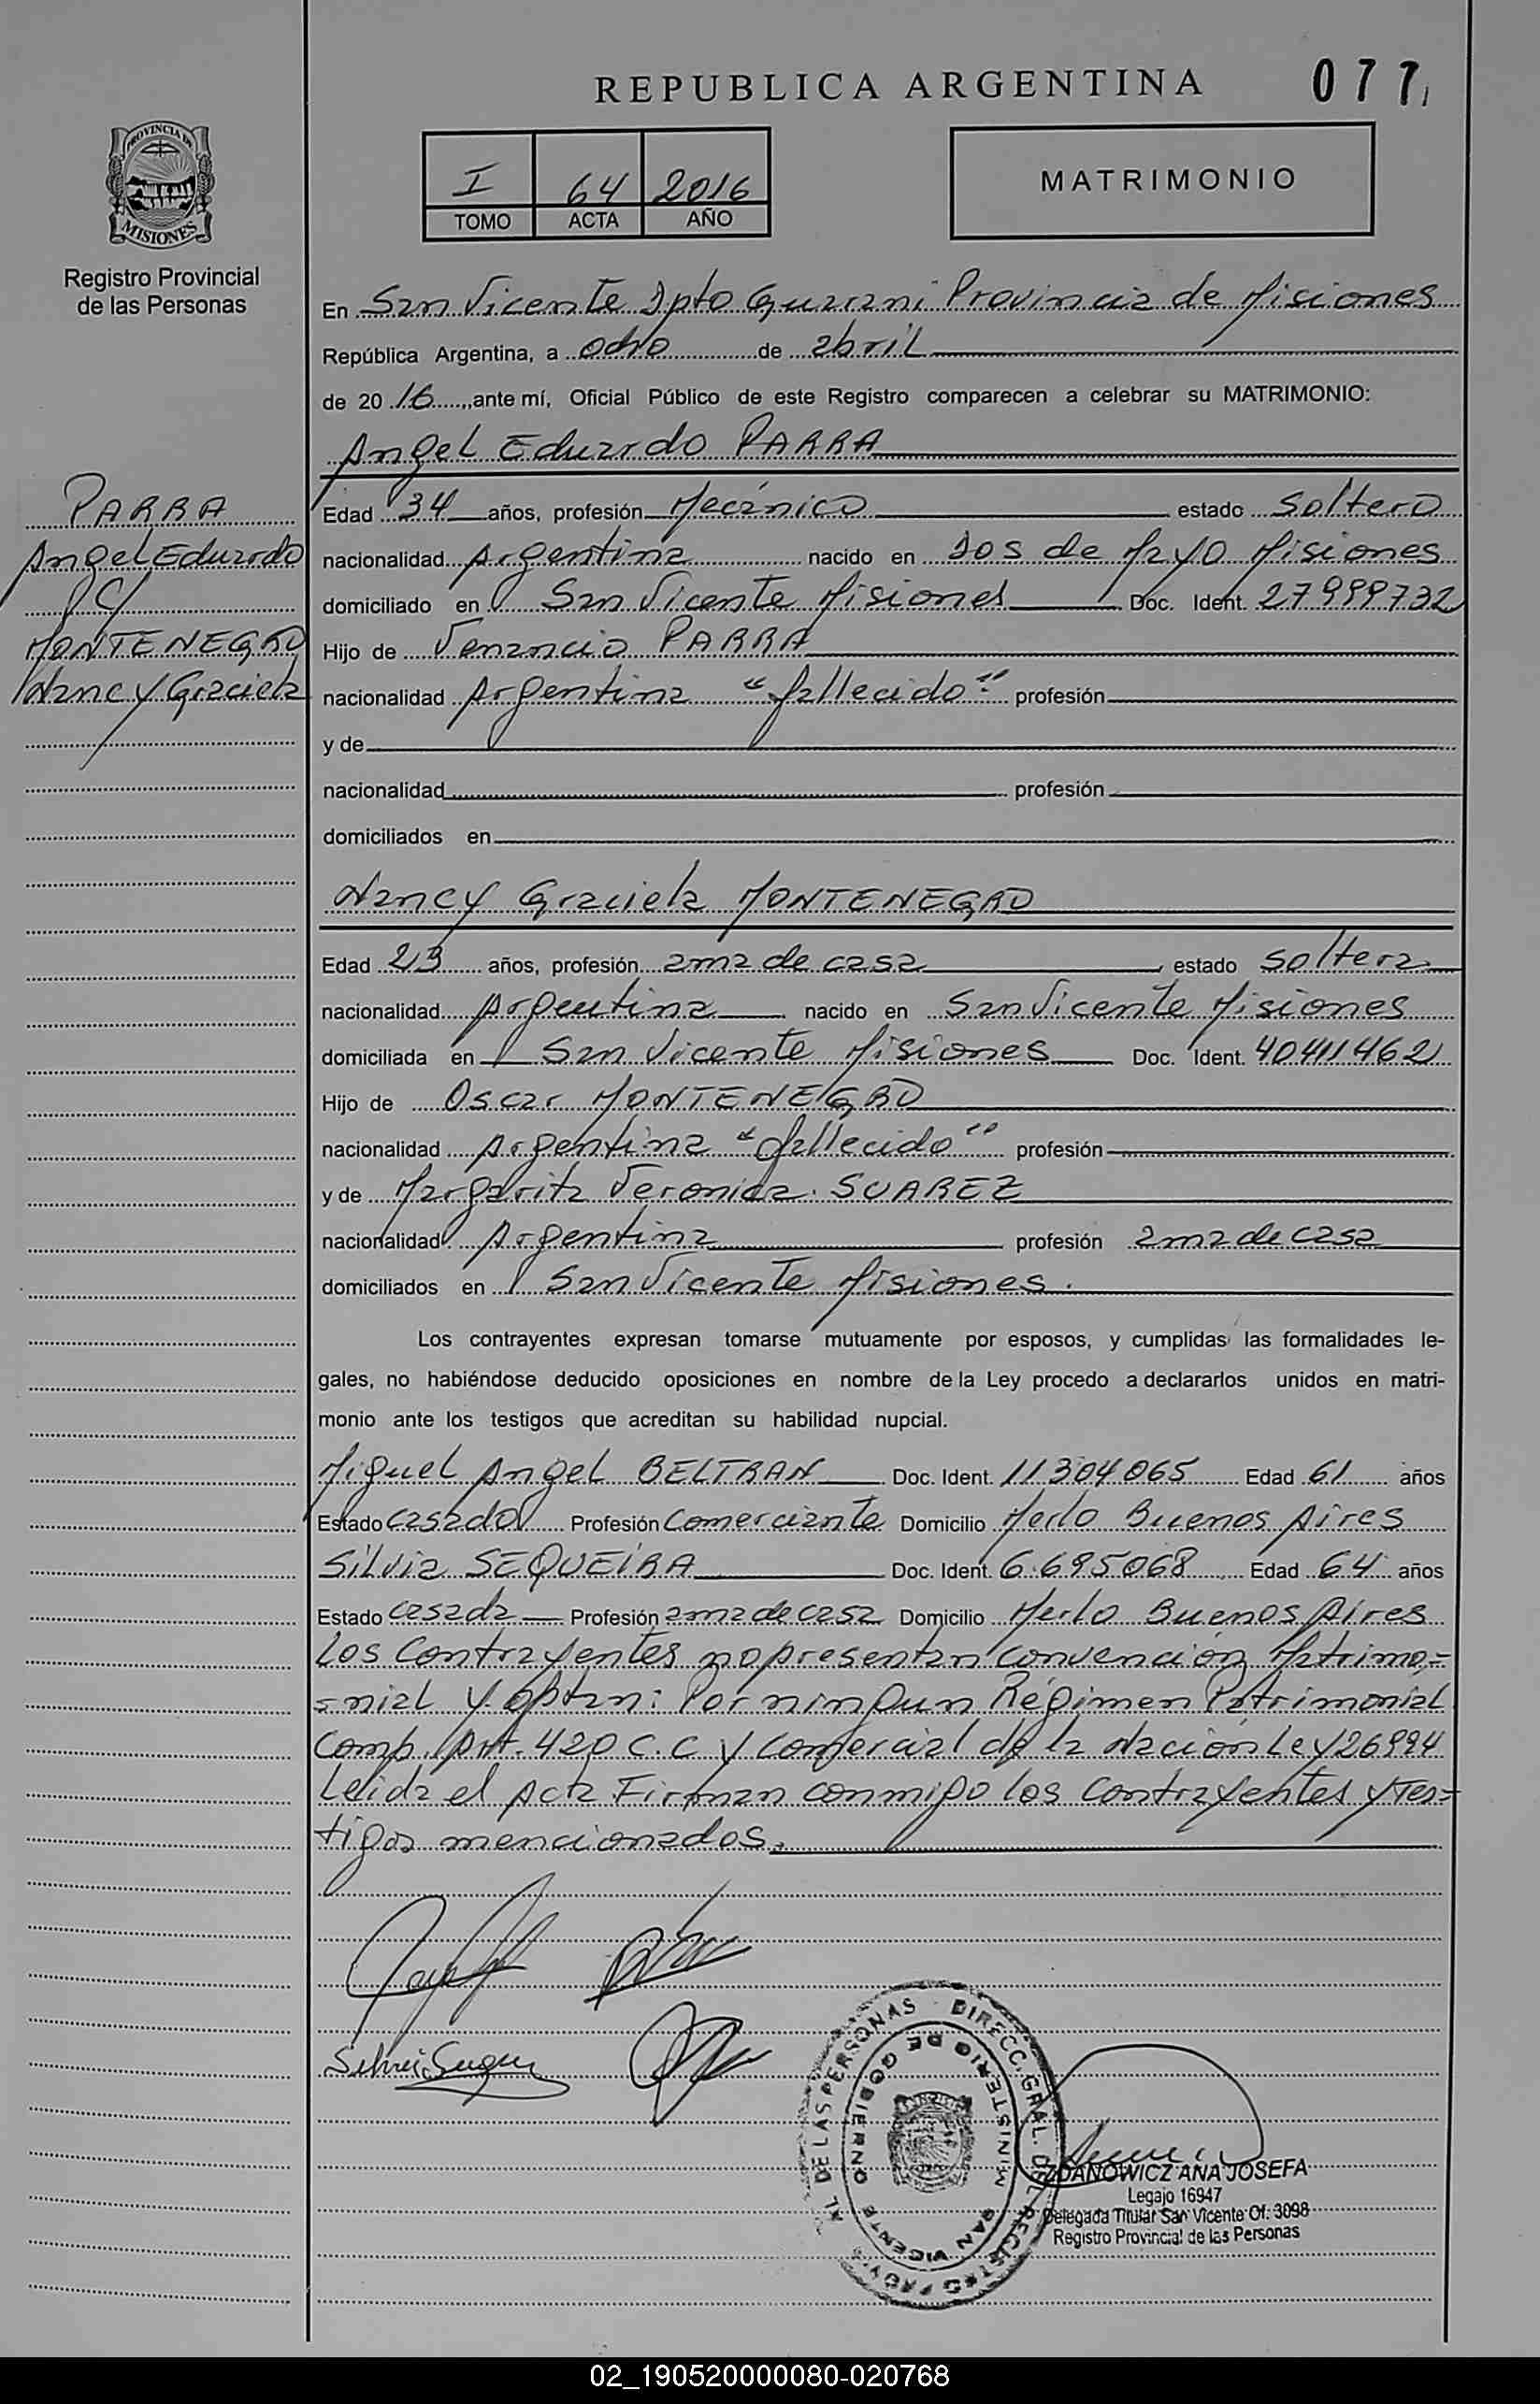 REPUBLICA ARGENTINA
077
PROVINCIA DE
MISIONES
Registro Provincial
de las Personas
I 64 2016
TOMO ACTA AÑO
MATRIMONIO
En San Vicente Dpto Guarani Provincia de Misiones
República Argentina, a ocho de abril
de 2016, ante mí, Oficial Público de este Registro comparecen a celebrar su MATRIMONIO:
Angel Eduardo PARRA
PARRA
Angel Eduardo
C/
MONTENEGRO
Nancy Graciela
Edad 34 años, profesión Mecánico estado soltero
nacionalidad Argentina nacido en Dos de Mayo Misiones
domiciliado en San Vicente Misiones Doc. Ident. 27999732
Hijo de Venancio PARRA
nacionalidad Argentina "fallecido" profesión
y de
nacionalidad profesión
domiciliados en
Nancy Graciela MONTENEGRO
Edad 23 años, profesión ama de casa estado soltera
nacionalidad Argentina nacido en San Vicente Misiones
domiciliada en San Vicente Misiones Doc. Ident. 40411462
Hijo de Oscar MONTENEGRO
nacionalidad Argentina "fallecido" profesión
y de Margarita Veronica SUAREZ
nacionalidad Argentina profesión ama de casa
domiciliados en San Vicente Misiones.
Los contrayentes expresan tomarse mutuamente por esposos, y cumplidas las formalidades le-
gales, no habiéndose deducido oposiciones en nombre de la Ley procedo a declararlos unidos en matri-
monio ante los testigos que acreditan su habilidad nupcial.
Miguel Angel BELTRAN Doc. Ident. 11304065 Edad 61 años
Estado casado Profesión Comerciante Domicilio Merlo Buenos Aires
Silvia SEQUEIRA Doc. Ident. 6.695068 Edad 64 años
Estado casada Profesión ama de casa Domicilio Merlo Buenos Aires
Los Contrayentes no presentan Convención Matrimo=
=nial y optan: Por ningun Régimen Patrimonial
Comp. Art. 420 C.C y Comercial de la Nación Ley 26994
Leida el Acta Firman conmigo los Contrayentes y Tes=
tigos mencionados.
DIRECC. GRAL. DEL REGISTRO PROVINCIAL DE LAS PERSONAS
MINISTERIO DE GOBIERNO
SAN VICENTE
ZDANOWICZ ANA JOSEFA
Legajo 16947
Delegada Titular San Vicente Of. 3098
Registro Provincial de las Personas
02_190520000080-020768